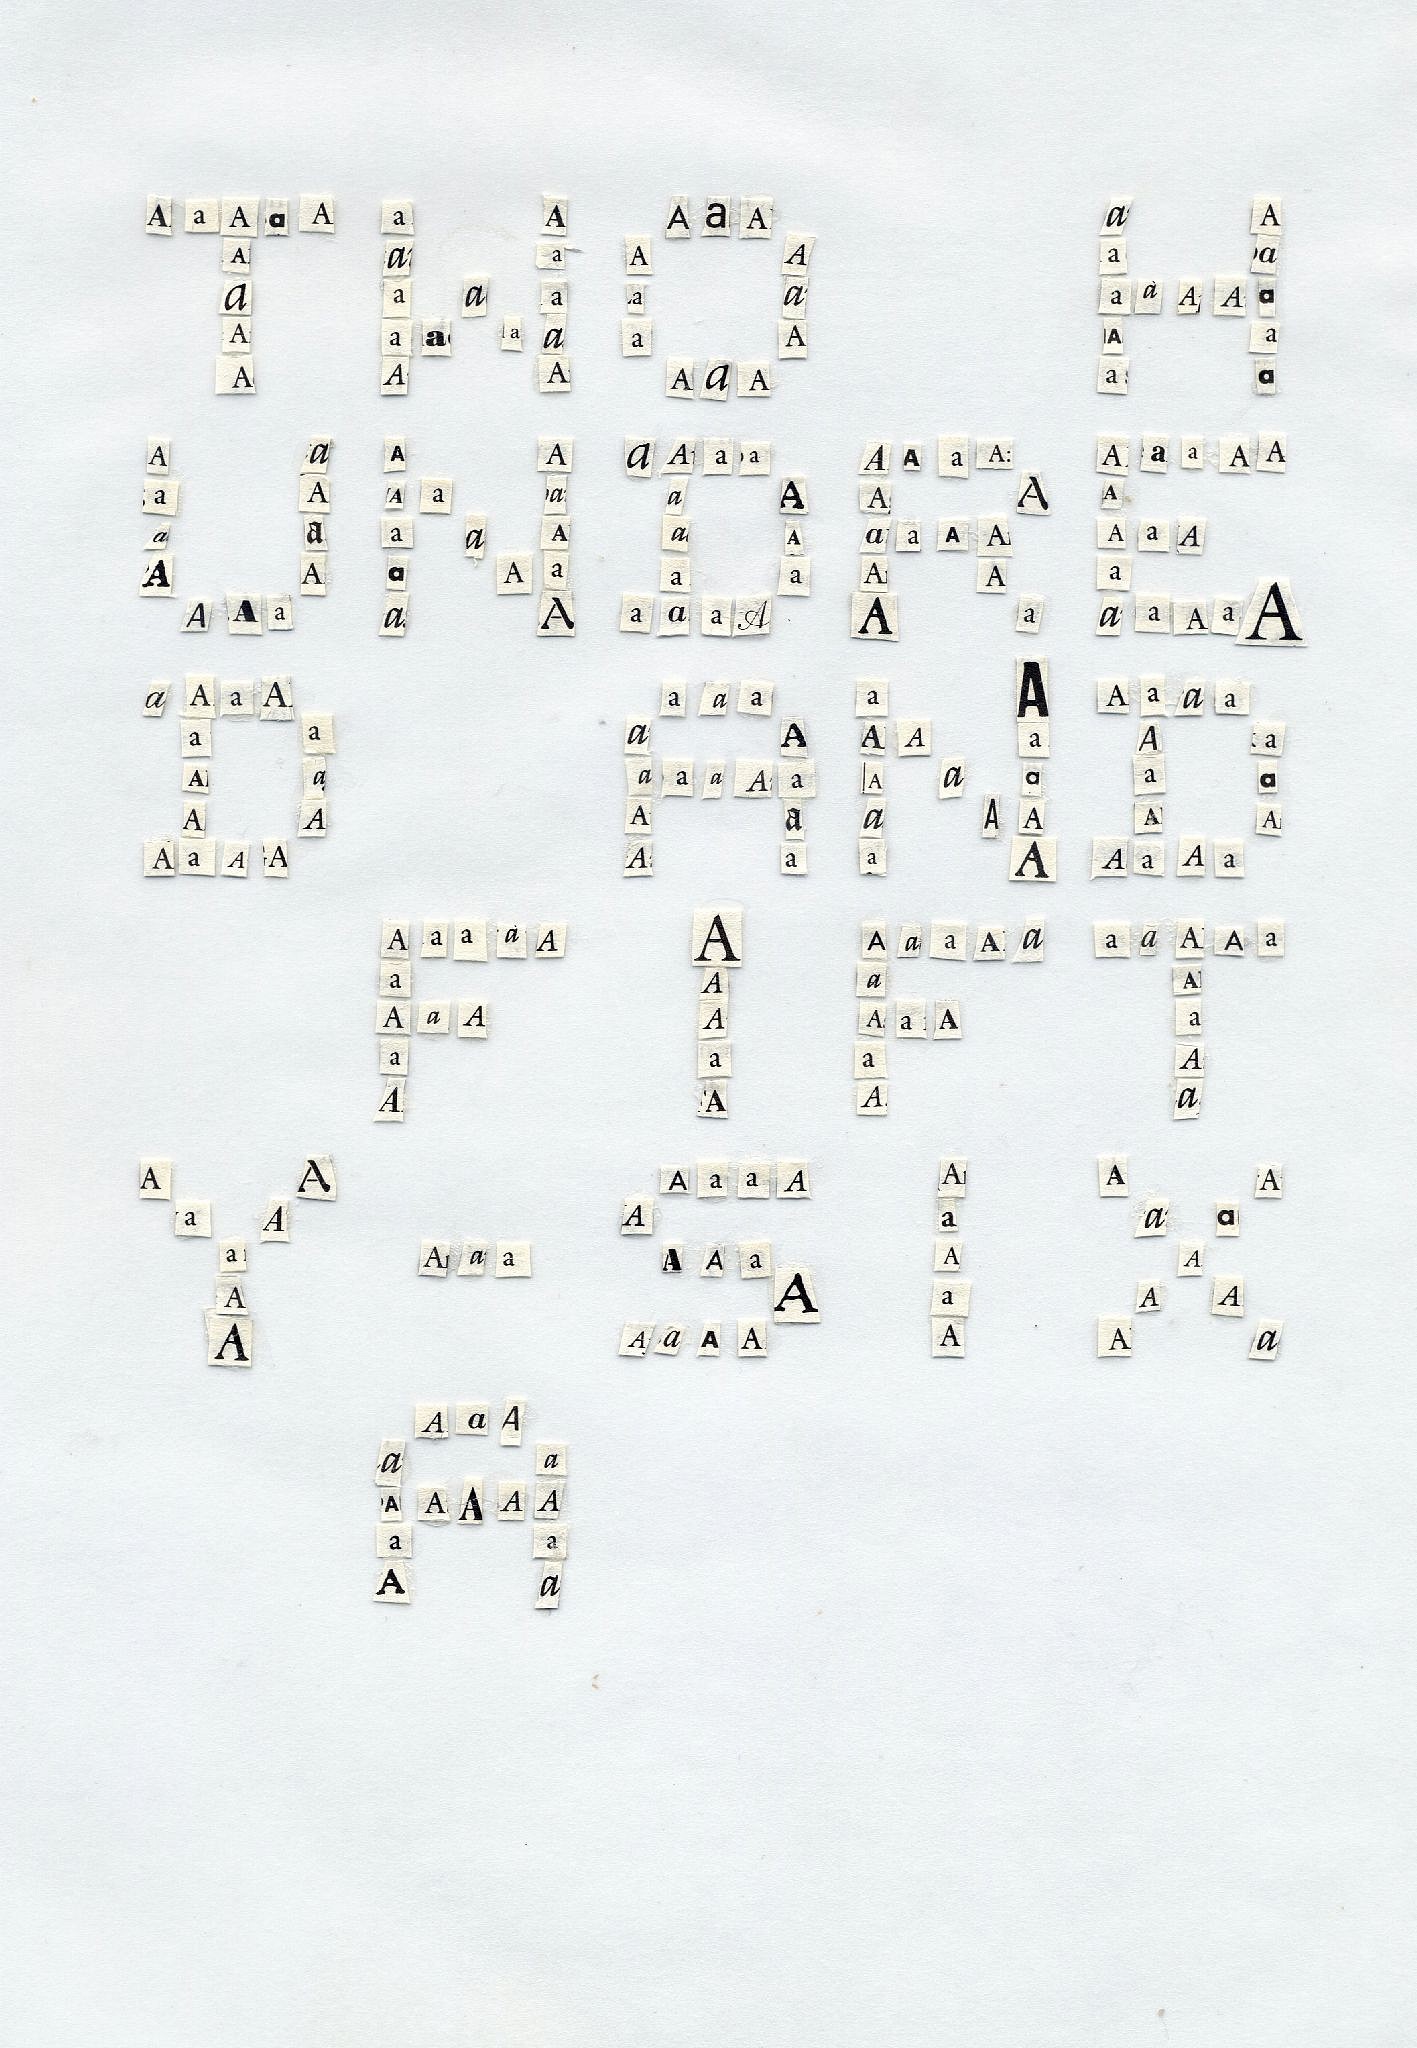 TWO H
UNDRE
D AND
FIFT
Y-SIX
A